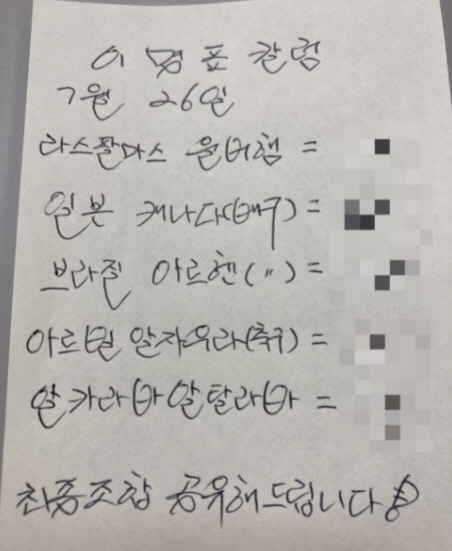 이명표 칼럼
7월 26일
라스팔마스 울버햄 =
일본 캐나다(배구) =
브라질 아르헨(〃) =
아르빌 알자우라(축구) =
알카라바 알탈라바 =
최종조합 공유해드립니다